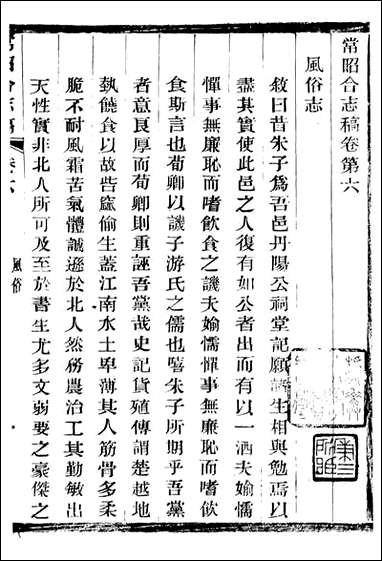 常昭合志稿卷第六
風俗志
敘曰昔朱子爲吾邑丹陽公祠堂記願諸生相與勉焉以
盡其實使此邑之人復有如公者出而有以一洒夫媮懦
憚事無廉恥而嗜飲食之譏夫媮懦憚事無廉恥而嗜飲
食斯言也荀卿以譏子游氏之儒也嘻朱子所期乎吾黨
者意良厚而荀卿則重誣吾黨哉史記貨殖傳謂楚越地
埶饒食以故呰窳偷生蓋江南水土卑薄其人筋骨多柔
脆不耐風霜苦氣體誠遜於北人然務農治工其勤敏出
天性實非北人所可及至於書生尤多文弱要之豪傑之
卷六
風俗